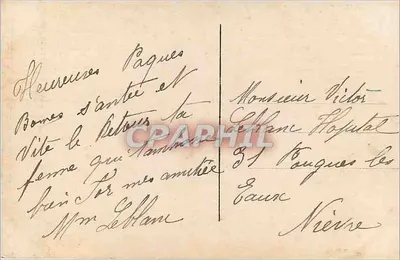 Heureuses Paques
Bones s'antée et
Vite le Retour ta
femme qui t'aime
bien Sor mes amitiée
Mm Leblanc
Monsieur Victor
Leblanc Hopital
31 Pougues les
Eaux
Nièvre
CPAPHIL